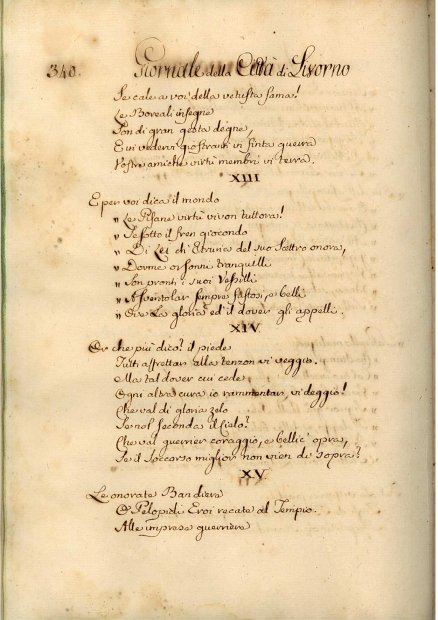 340. Giornale della Città di Livorno
Se cale a voi della vetusta fama!
Le Boreali insegne
Son di gran gesta degne,
E in vedervi giostranti in finta guerra
Vostre amiche virtù membri vi terra.
XIII
E per voi dica il mondo
„ Le Pisane virtù vivon tuttora!
„ Se sotto il fren giocondo
„ Di Lei di Etruria del suo Scettro onora,
„ Dorme or sonni tranquilli
„ Son pronti i suoi Vessilli
„ A sventolar sempre fastosi, e belli
„ Ove la gloria ed il dover gli appelli.
XIV.
Or che più dico? il piede
Tutti affrettar alla tenzon vi veggio.
Ma tal dover cui cede
Ogni altra cura io rammentar vi deggio!
Che val di gloria zelo
Se nol seconda il Cielo?
Che val guerrier coraggio, e bellic' opra,
Se il soccorso miglior non vien di sopra?
XV.
Le onorate Bandiere
O Pelopidi Eroi recate al Tempio.
Alle imprese guerriere